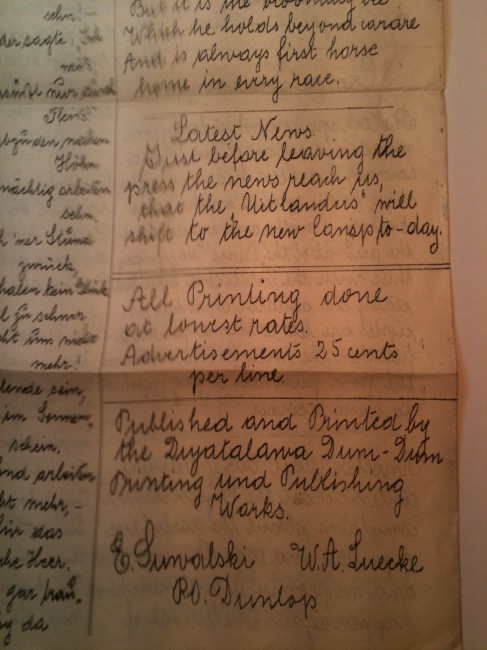 sehn!-
sagte: Ich
nur
Fleiß!
Höhn
mächtig arbeiten
sehn
'ner
zurück,
kein Glück
zu schwer
uns nicht
mehr!
sein,
im Sonnen-
schein.
und arbeiten
mehr,-
für das
Heer.
gar
da
But it is the
Which he holds beyond carare
And is always first horse
home in every race.
Latest News.
Just before leaving the
press the news reach us,
that the „Uitlanders" will
shift to the new camp to-day.
All Printing done
at lowest rates.
Advertisements 25 cents
per line.
Published and Printed by
the Diyatalawa Dum-Dum
Printing und Publishing
Works.
E. Suwalski W.A. Luecke
R.O. Dunlop